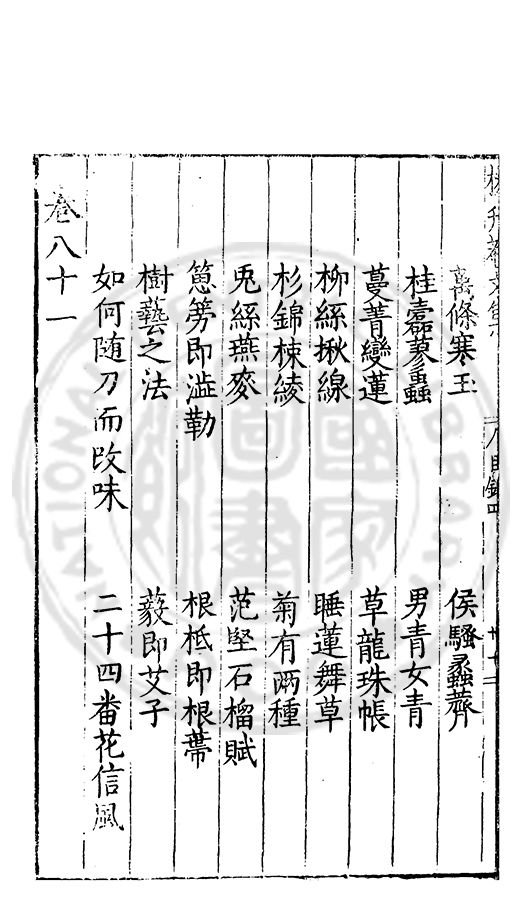 萬條寒玉　侯騷蠡薺
桂蠹蓼蟲　男青女青
蔓菁變蓮　草龍珠帳
柳絲揪線　睡蓮舞草
杉錦楝綾　菊有兩種
兎絲燕麥　范堅石榴賦
葱簩即澁勒　根柢即根蔕
樹藝之法　藙即艾子
如何随刀而改味　二十四番花信風
卷八十一